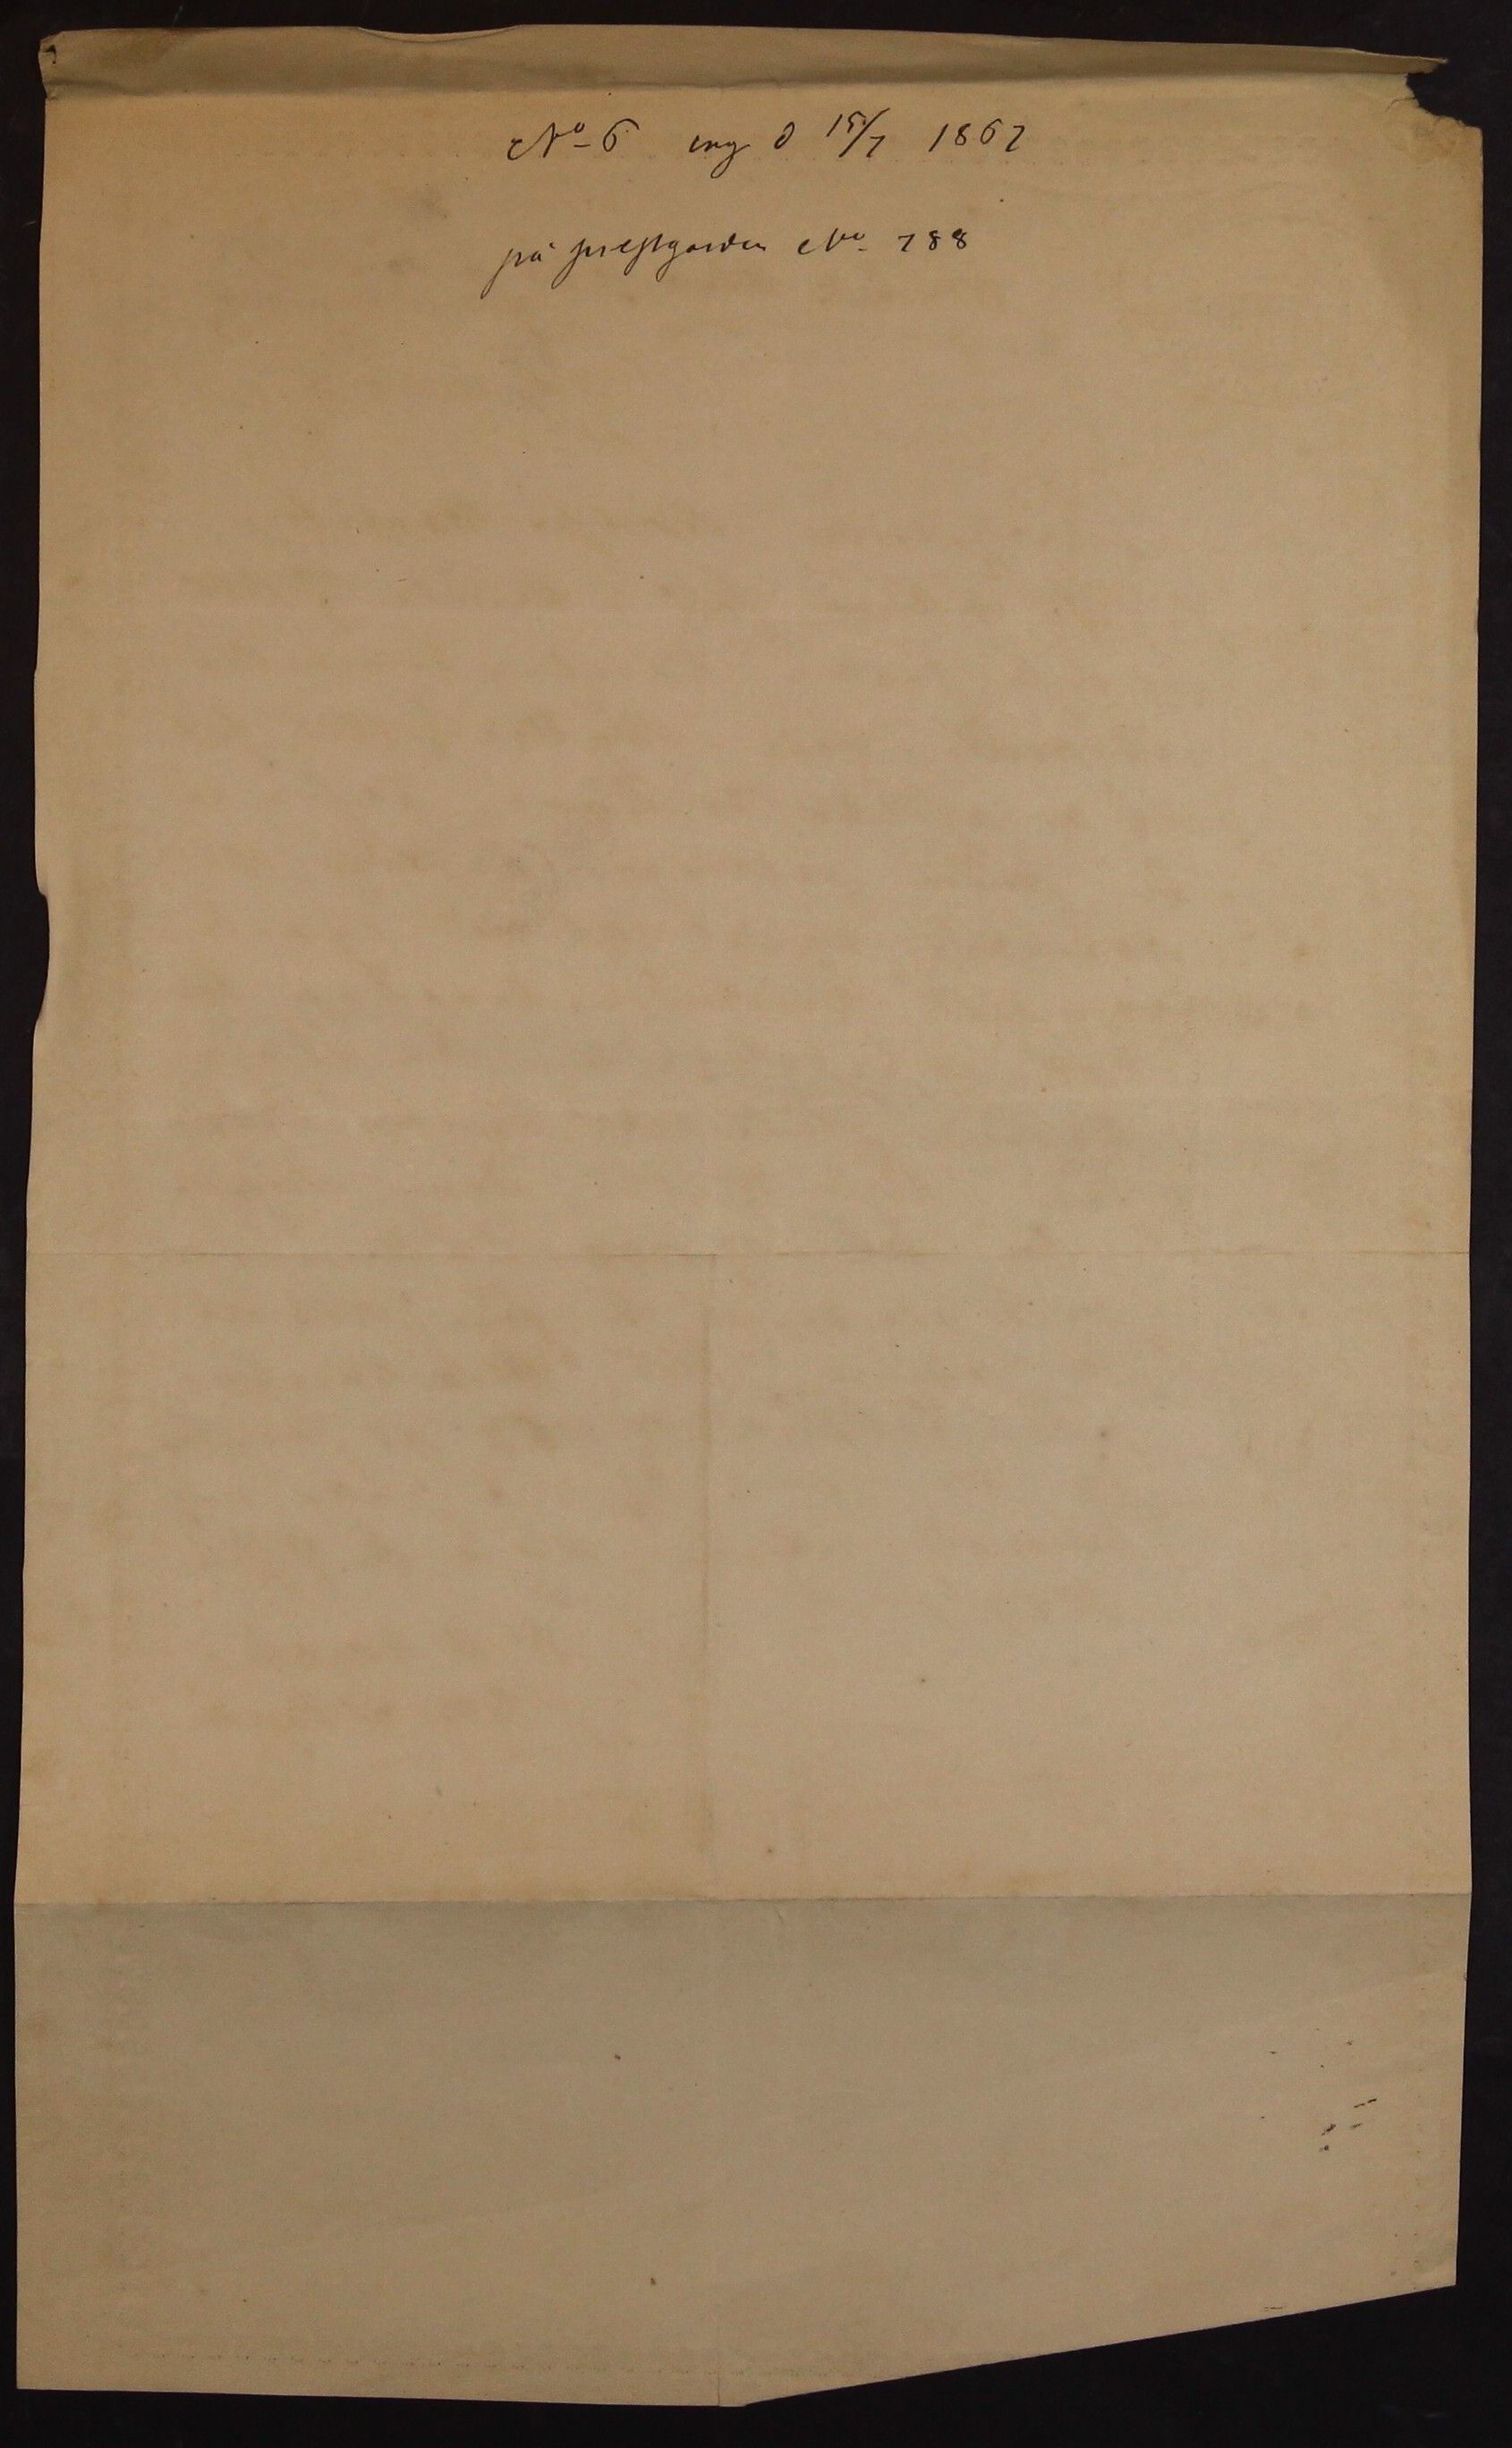 No 6 ing d 15/7 1867
på prestgården No 188